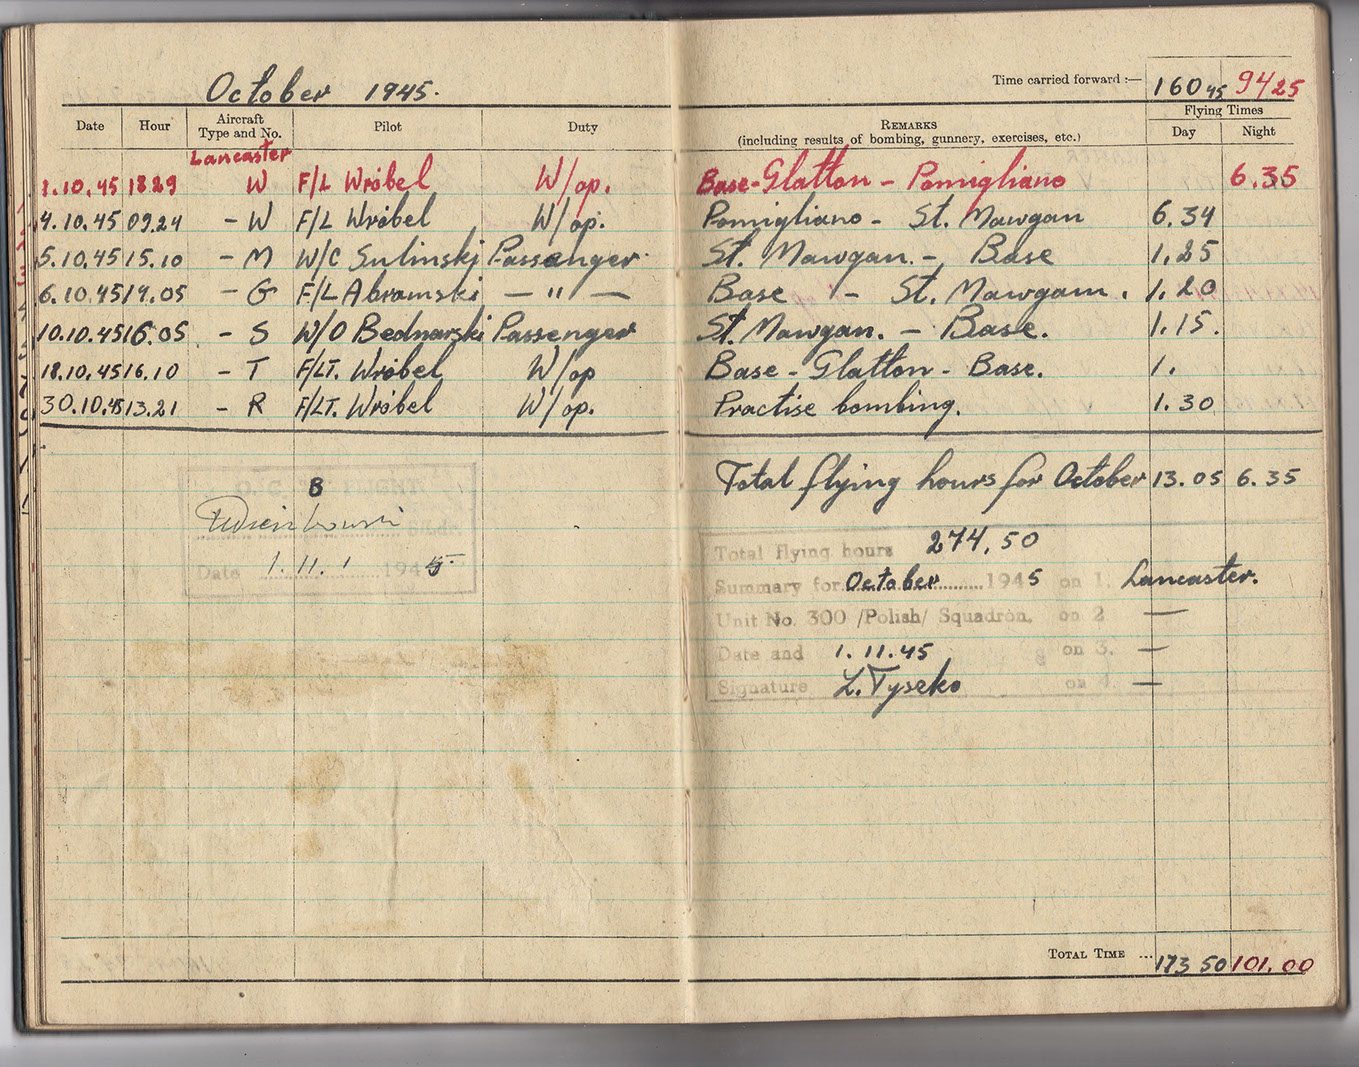 October 1945.
Time carried forward :— 160 45 94 25
Date Hour Aircraft Type and No. Pilot Duty REMARKS (including results of bombing, gunnery, exercises, etc.) Flying Times Day Night
Lancaster
1.10.45 1829 W F/L Wróbel W/op. Base-Glatton - Pomigliano 6.35
4.10.45 09.24 - W F/L Wróbel W/op. Pomigliano - St. Mawgan 6.34
5.10.45 15.10 - M W/C Sulinski Passenger St. Mawgan. - Base 1.25
6.10.45 14.05 - G F/L Abramski — " — Base - St. Mawgam. 1.20
10.10.45 16.05 - S W/O Bednarski Passenger St. Mawgan. - Base. 1.15.
18.10.45 16.10 - T F/LT. Wróbel W/op Base - Glatton - Base. 1.
30.10.45 13.21 - R F/LT. Wróbel W/op. Practise bombing. 1.30
Total flying hours for October 13.05 6.35
O. C. "B" FLIGHT
Date 1.11.1 1945
Total flying hours 274,50
Summary for October 1945 on 1. Lancaster.
Unit No. 300 /Polish/ Squadron. on 2 —
Date and 1.11.45 on 3. —
Signature L. Tyseko on 4. —
TOTAL TIME ... 173 50 101.00